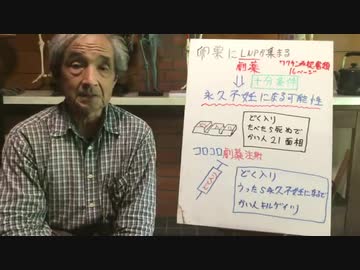 卵巣にLNPが集まる
劇薬
ワクチン
16ページ
十分条件
永久不妊になる可能性
どく入り
たべたら死ぬで
かい人21面相
コロコロ劇薬注射
どく入り
どく入り
うったら永久不妊になるで
かい人キルゲイツ